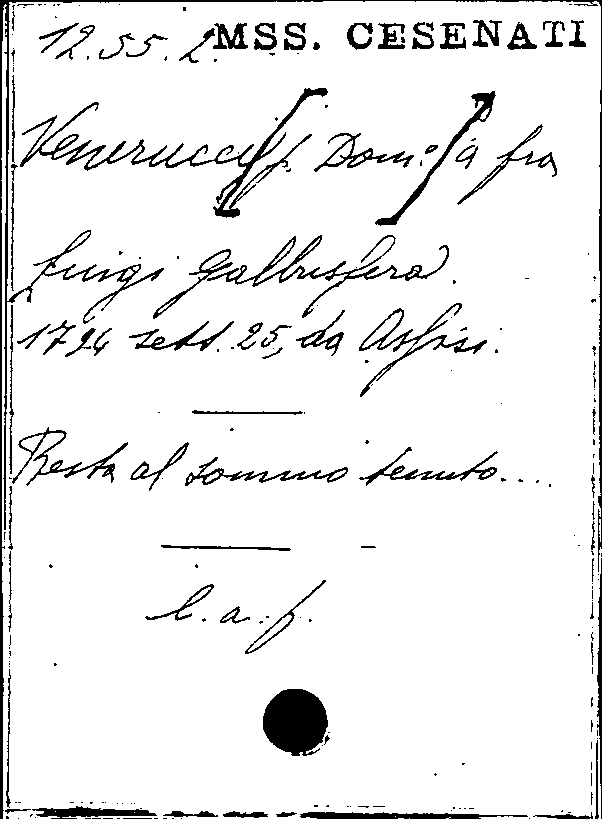 12.55.2. MSS. CESENATI
Venerucci [f. Dom.º] a fra
Luigi Gallusfera.
1794 sett. 25, da Assisi.
Resta al sommo tenuto....
l. a. f.